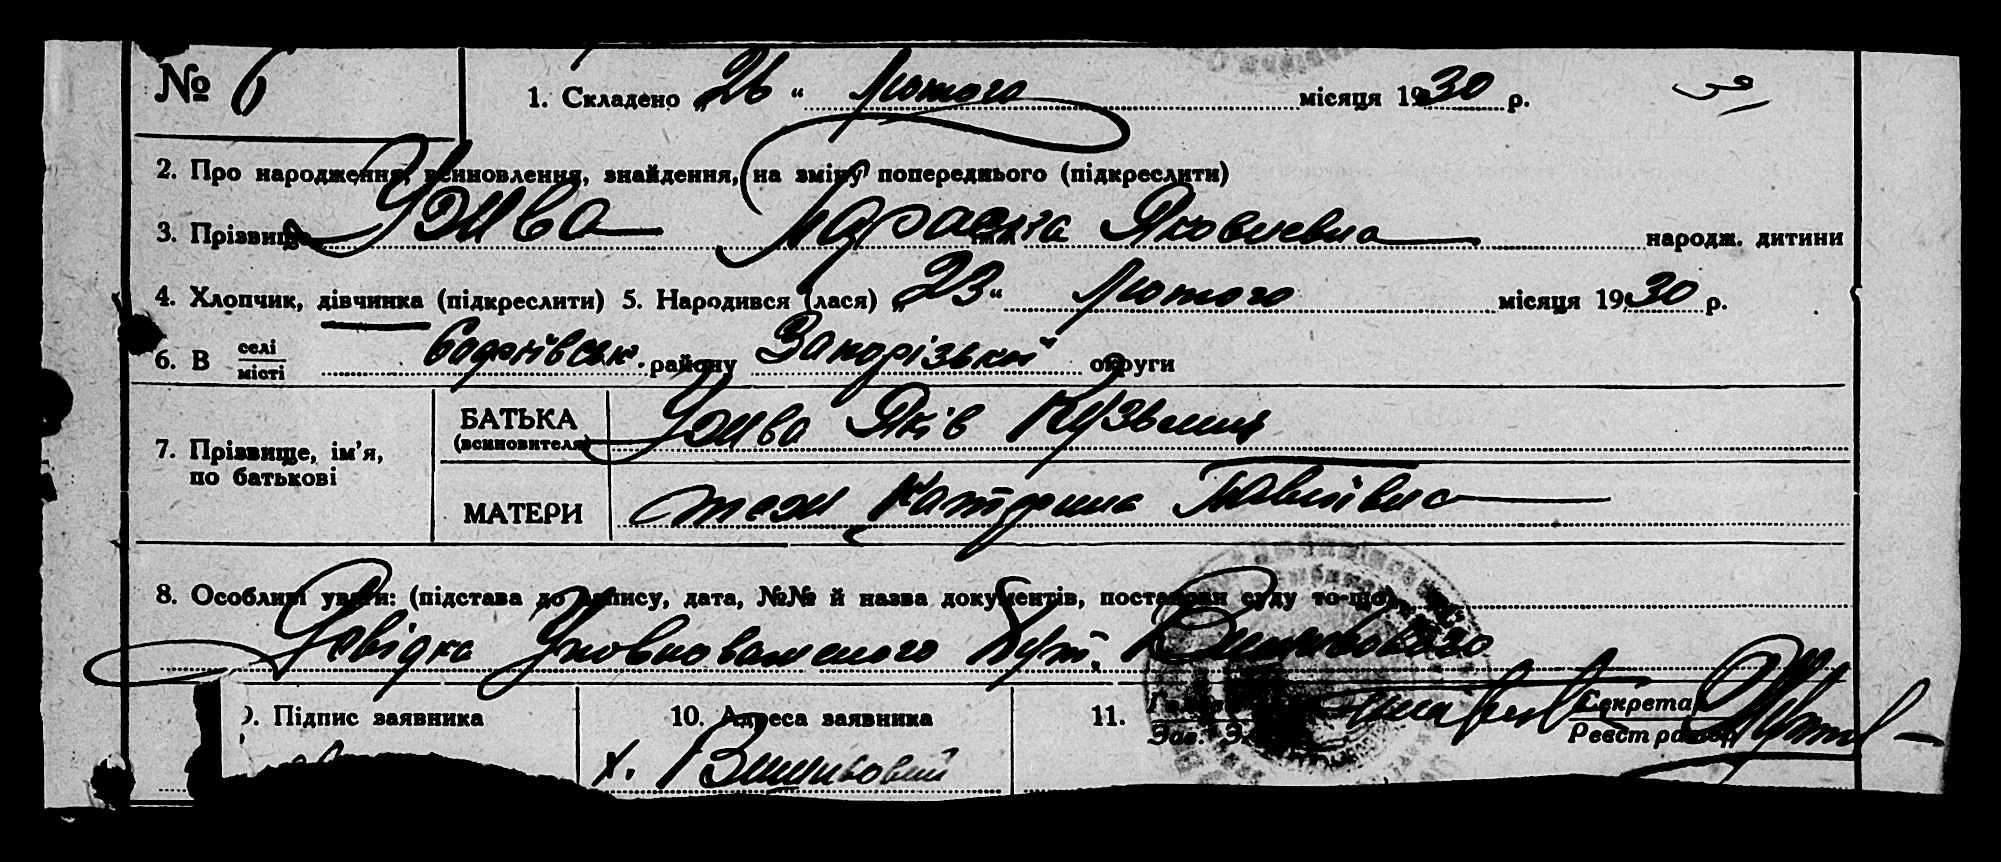 № 6 1. Складено „26“ Лютого місяця 1930 р.
2. Про народження, всиновлення, знайдення, на зміну попереднього (підкреслити)
3. Прізвище Удива Параска Яковлевна народж. дитини
4. Хлопчик, дівчинка (підкреслити) 5. Народився (лася) „23“ Лютого місяця 1930 р.
6. В селі місті району Запорізькой округи
БАТЬКА (всиновителя) Удива Яків Кузьмич
7. Прізвище, ім’я, по батькові
МАТЕРИ теж Катерина Павлівна
8. Особливі уваги: (підстава до запису, дата, №№ й назва документів, постанови суду то-що)
Довідка Уповноваженого Хут.
9. Підпис заявника 10. Адреса заявника 11. Зав. Секретар
Реєстратор
Х.